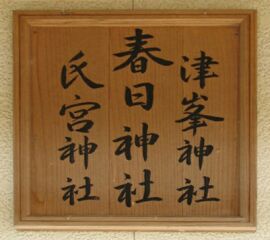 津峯神社
春日神社
氏宮神社